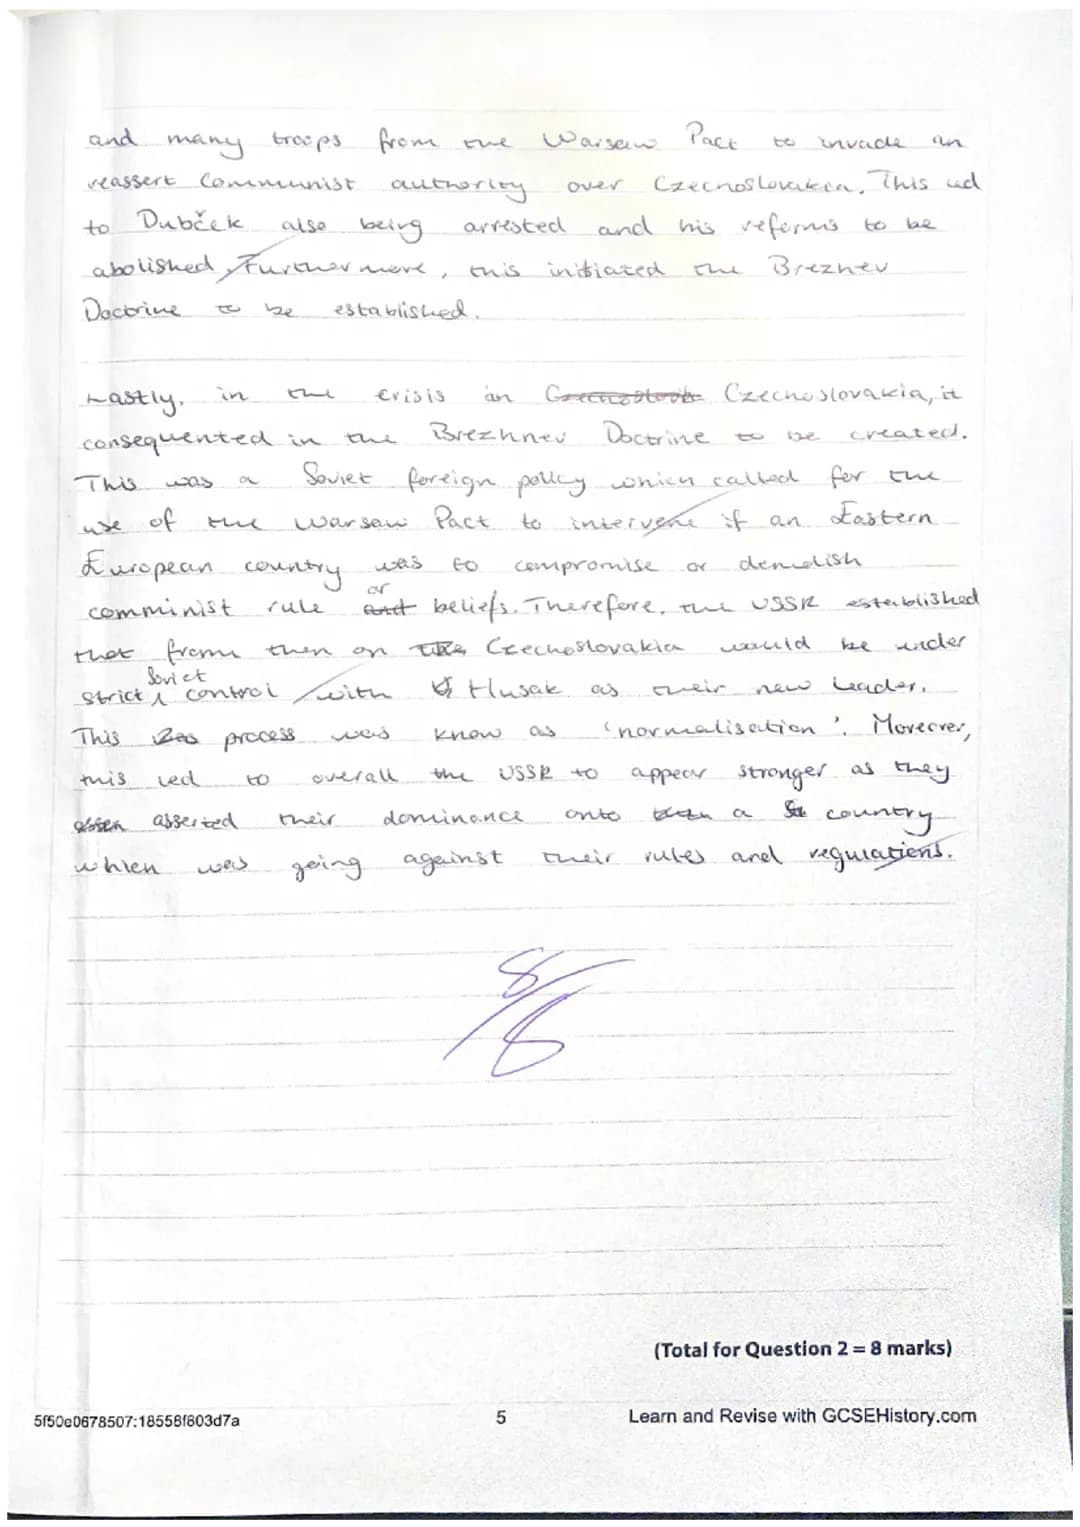 and many troops from the Warsaw Pact to invade an
reassert Communist authority over Czechoslovakia. This led
to Dubček also being arrested and his reforms to be
abolished. Furthermore, this initiated the Brezhnev
Doctrine to be established.
Lastly, in the crisis in Czechoslovakia, it
consequented in the Brezhnev Doctrine to be created.
This was a Soviet foreign policy which called for the
use of the Warsaw Pact to intervene if an Eastern
European country was to compromise or demolish
comminist rule or beliefs. Therefore, the USSR established
that from then on Czechoslovakia would be under
strict Soviet control with Husak as their new leader.
This process was know as 'normalisation'. Moreover,
this led to overall the USSR to appear stronger as they
asserted their dominance onto a country
which was going against their rules and regulations.
8/8
(Total for Question 2 = 8 marks)
5f50e0678507:18558f803d7a 5 Learn and Revise with GCSEHistory.com